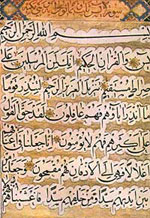 بسم الله الرحمن الرحيم
يس والقران الحكيم انك لمن المرسلين على
صراط مستقيم تنزيل العزيز الرحيم لتنذر قوما
ما انذر اباؤهم فهم غافلون لقد حق القول
على اكثرهم فهم لا يؤمنون انا جعلنا فى اعناقهم
اغلالا فهى الى الاذقان فهم مقمحون وجعلنا
من بين ايديهم سدا ومن خلفهم سدا فاغشيناهم